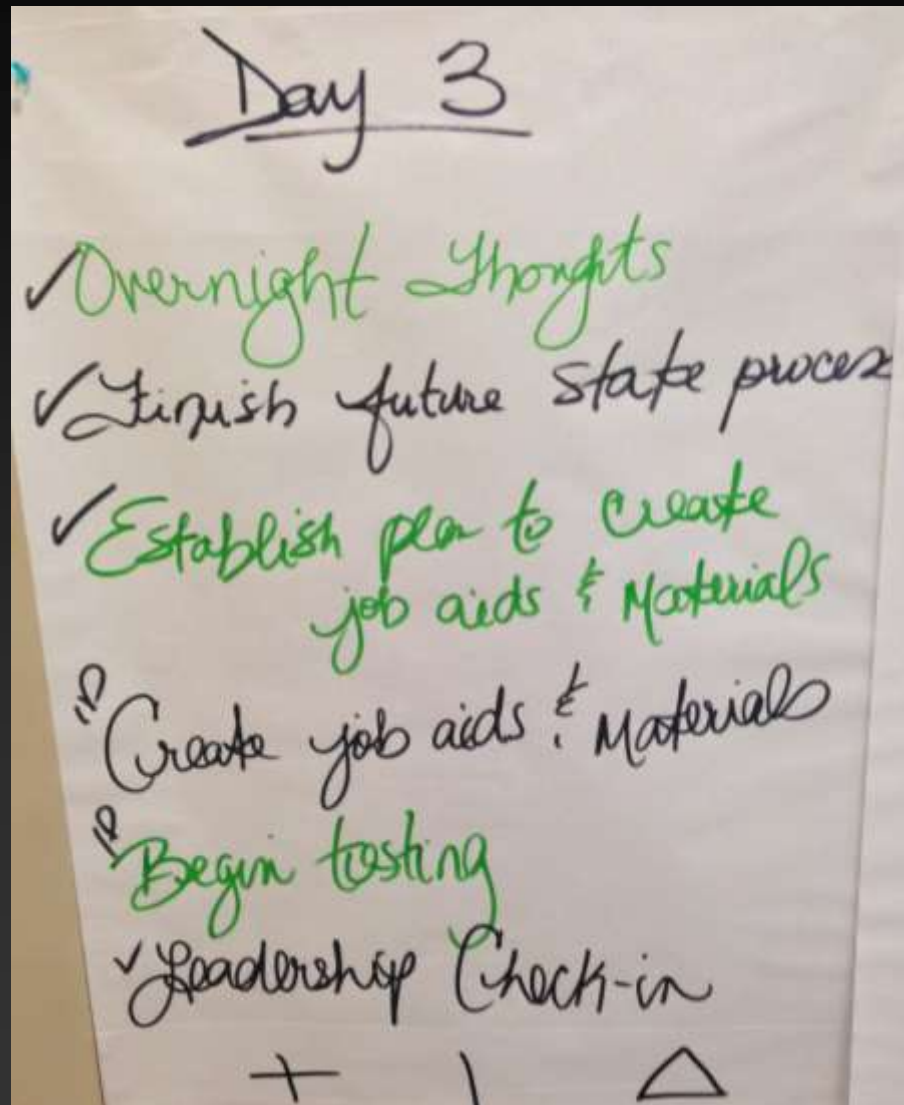 Day 3
✓ Overnight Thoughts
✓ Finish future state process
✓ Establish plan to create
job aids & Materials
IP Create job aids & Materials
IP Begin testing
✓ Leadership Check-in
+ | △